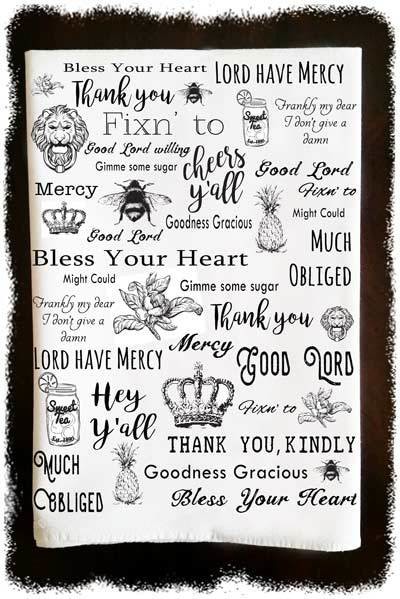 Bless Your Heart
LORD HAVE MERCY
Thank you
Fixn' to
Sweet
Tea
Frankly my dear
I don't give a
damn
Good Lord willing
Gimme some sugar
cheers
y'all
Good Lord
Fixn' to
Mercy
Might Could
Good Lord
Goodness Gracious
MUCH
OBLIGED
Bless Your Heart
Might Could
Gimme some sugar
Frankly my dear
I don't give a
damn
Thank you
LORD HAVE MERCY
Mercy
GOOD LORD
Sweet
Tea
Hey
Y'all
Fixn' to
THANK YOU, KINDLY
MUCH
OBLIGED
Goodness Gracious
Bless Your Heart